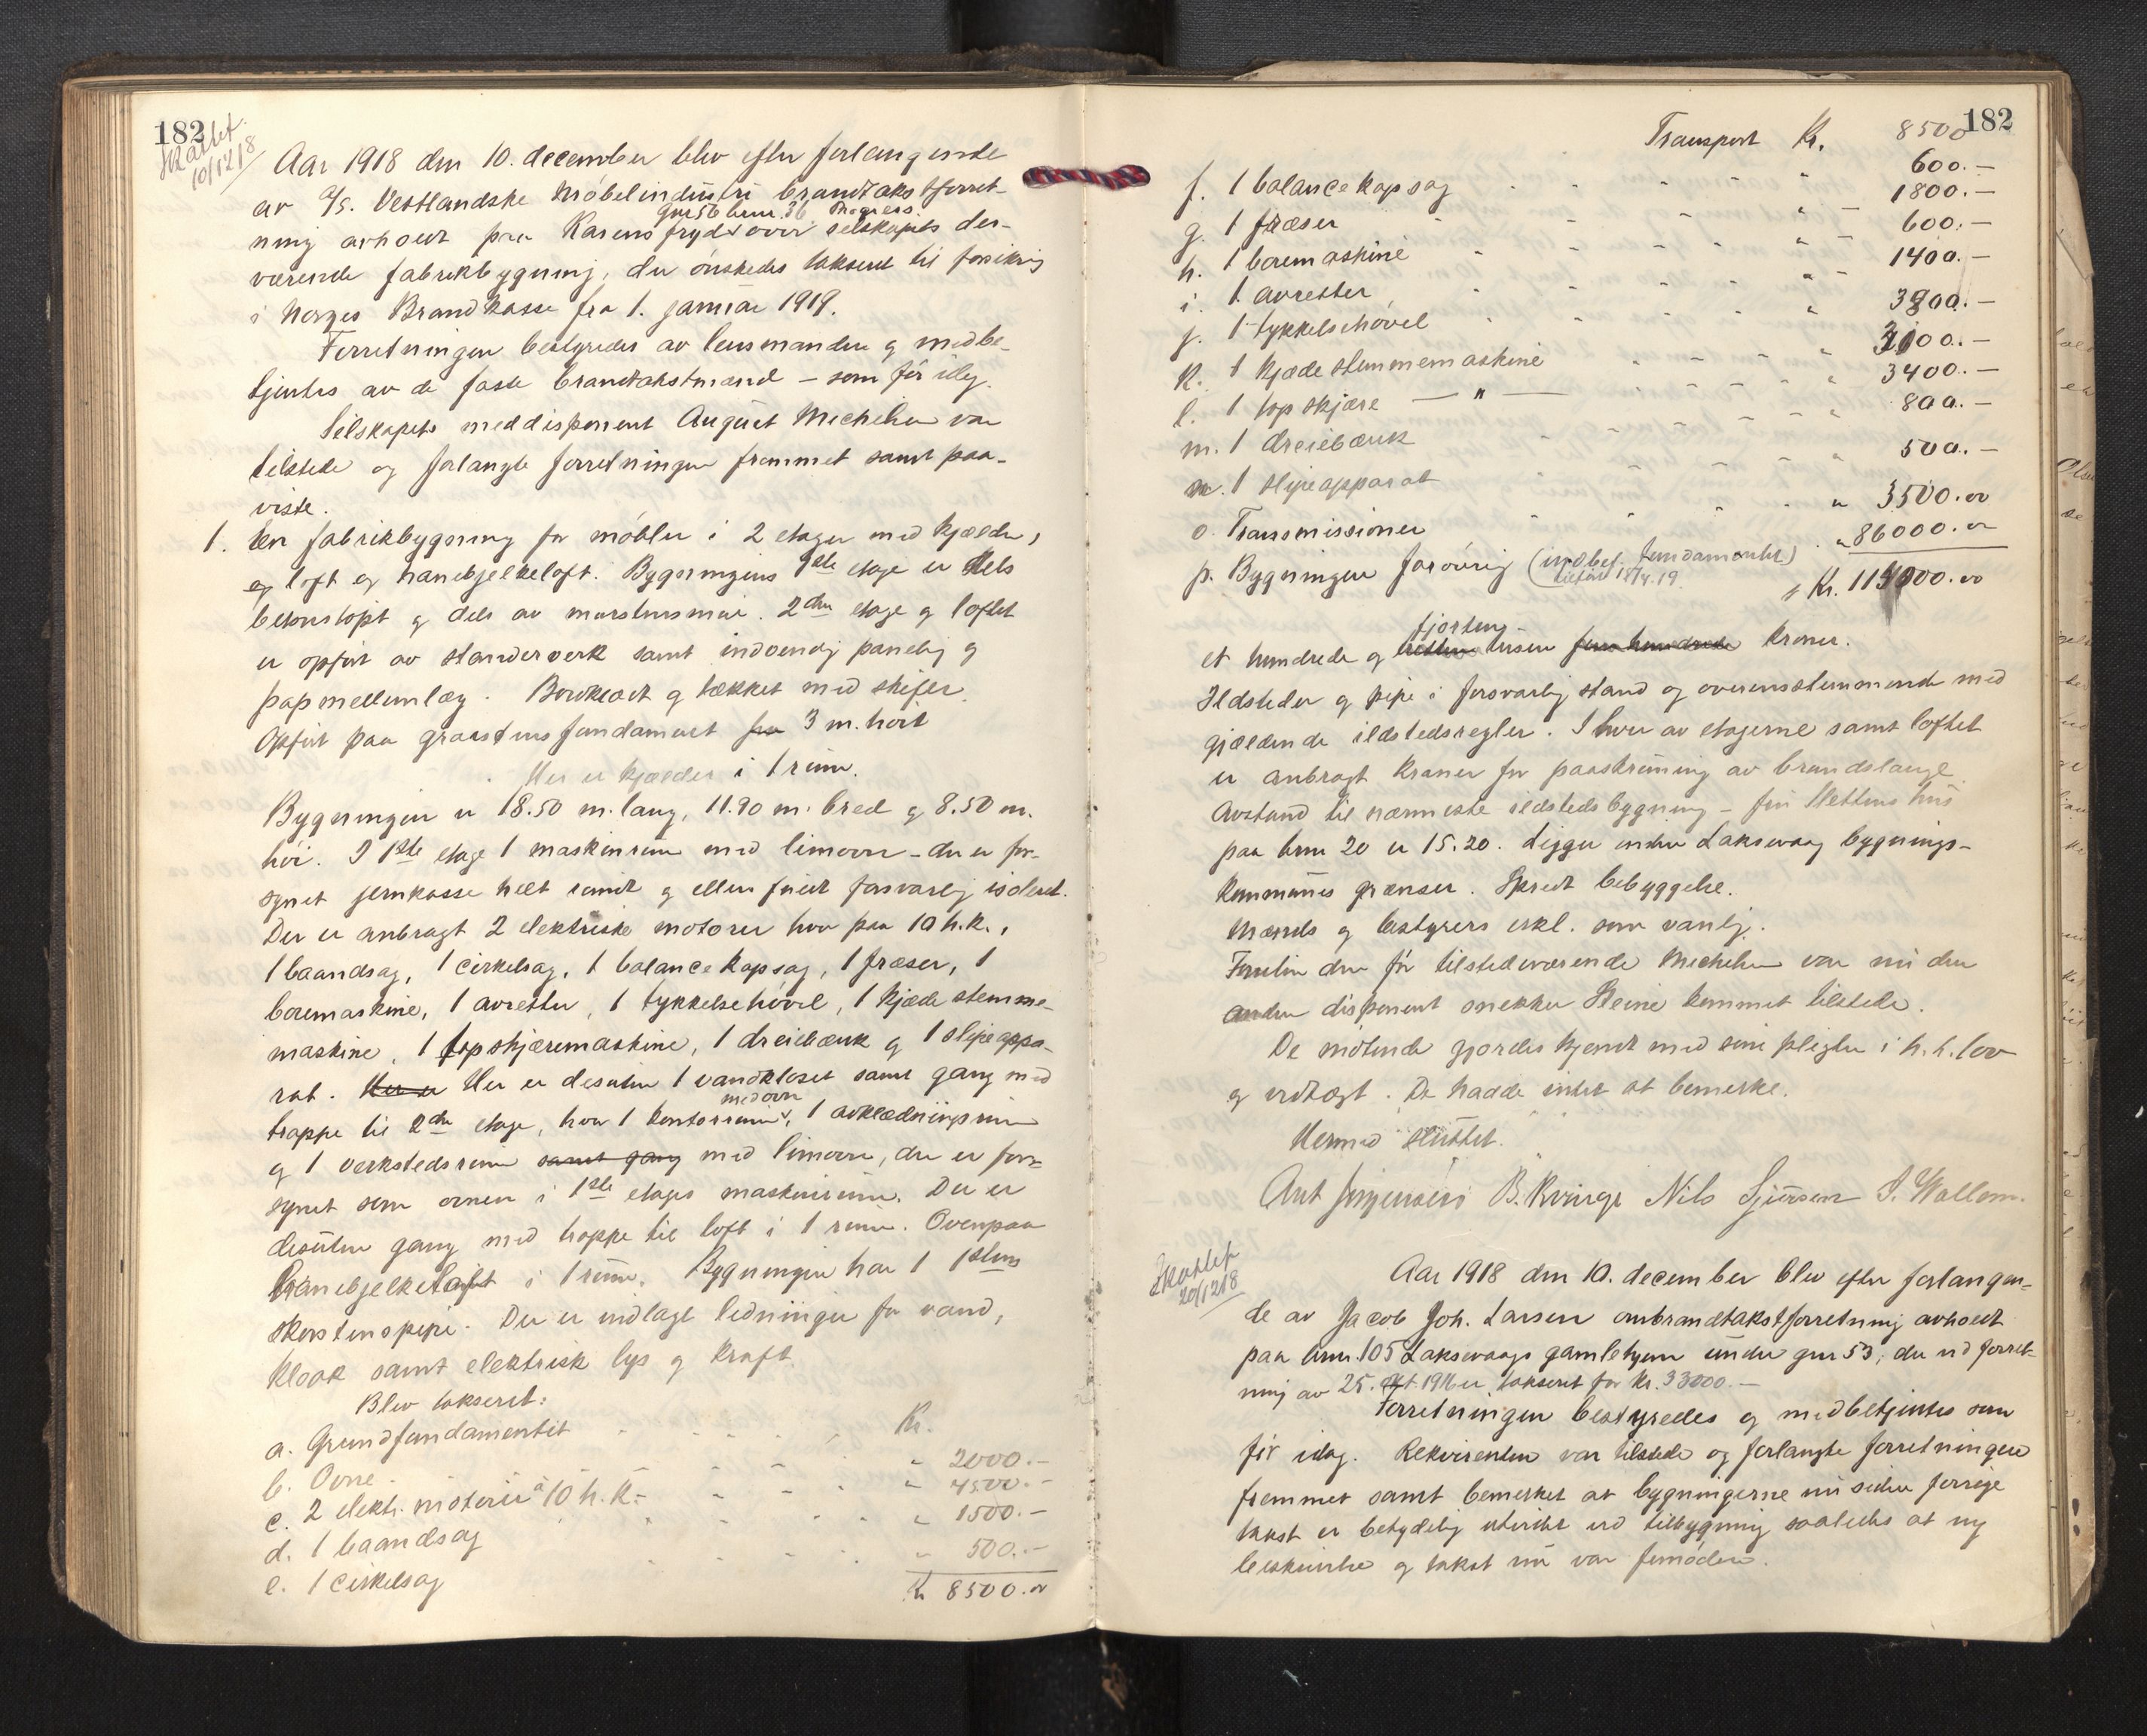 182
Skattet
10/12 18
Aar 1918 den 10. december blev efter forlangende
av A/S. Vestlandske Møbelindustri brandtakstforret-
gnr 56 brnr. 36 Progress
ning avholdt paa Karensfryd over selskapets der-
værende fabrikbygning, der ønskedes takseret til forsikring
i Norges Brandkasse fra 1. januar 1919.
Forretningen bestyredes av lensmanden og medbe-
tjentes av de faste brandtakstmænd – som før idag.
Selskapets meddisponent August Michelsen var
tilstede og forlangte forretningen fremmet samt paa-
viste.
1. En fabrikbygning for møbler i 2 etager med kjelder,
og loft og hanebjelkeloft. Bygningens 1ste etage er dels
betonstøpt og dels av murstensmur. 2den etage og loftet
er opført av standerverk samt indvendig paneling og
papmellemlæg. Bordklædt og tækket med skifer.
Opført paa graastensfundament fra 3 m. høit
Her er kjælder i 1 rum.
Bygningen er 18.50 m. lang, 11.90 m. bred og 8.50 m.
høi. I 1ste etage 1 maskinrum med limovn – der er for-
synet jernkasse helt rundt og ellers fuldt forsvarlig isoleret.
Der er anbragt 2 elektriske motorer hver paa 10 h.k.,
1 baandsag, 1 cirkelsag, 1 balancekapsag, 1 fræser, 1
boremaskine, 1 avretter, 1 tykkelsehøvel, 1 kjædestemme-
maskine, 1 topskjæremaskine, 1 dreiebænk og 1 slipeappa-
rat. Her er Her er desuten 1 vandkloset samt gang med
med ovn
trappe til 2den etage, hvor 1 kontorrum, 1 avklædningsrum
og 1 verkstedsrum samt gang med limovn, der er for-
synet som ovnen i 1ste etages maskinrum. Der er
desuten gang med trappe til loft i 1 rum. Ovenpaa
hanebjelkeloft i 1 rum. Bygningen har 1 1stens
skorstenspipe. Der er indlagt ledninger for vand,
kloak samt elektrisk lys og kraft.
Blev takseret:
a. Grundfundamentet Kr.
b. Ovne " 2000.-
c. 2 elektr. motorer à 10 h.k. " 4500.-
d. 1 baandsag " 1500.-
e. 1 cirkelsag " 500.-
Kr 8500.00
182
Transport Kr. 8500
f. 1 balancekapsag 600.-
g. 1 fræser 1800.-
h. 1 boremaskine 600.-
i. 1 avretter 1400.-
j. 1 tykkelsehøvel 3800.-
k. 1 kjædestemmemaskine 3100.-
l. 1 topskjære — " — 3400.-
m. 1 dreiebænk 800.-
n. 1 slipeapparat 500.-
o. Transmissioner " 3500.00
p. Bygningen forøvrig (indbef. fundamentet) " 86000.00
tilført 15/4.19.
Kr. 114000.00
fjorten-
et hundrede og tretten tusen fem hundrede kroner.
Ildsteder og pipe i forsvarlig stand og overensstemmende med
gjældende ildstedsregler. I hver av etagerne samt loftet
er anbragt kraner for paaskruning av brandslange.
Avstand til nærmeste ildstedsbygning – fru Slettens hus
paa brnr 20 er 15.20. Ligger under Laksevaag bygnings-
kommunes grænser. Spredt bebyggelse.
Mænds og bestyrers erkl. som vanlig.
Foruten den før tilstedeværende Michelsen var nu den
anden disponent snekker Steine kommet tilstede.
De møtende gjordes kjendt med sine pligter i h.t. lov
og vedtægt. De hadde intet at bemerke.
Hermed sluttet.
Ant Jørgensen B. Kvinge Nils Sjursen S. Wallem.
Skattet
20/12 18
Aar 1918 den 10. december blev efter forlangen-
de av Jacob Joh. Larsen ombrandtakstforretning avholdt
paa brnr. 105 Laksevaags gamlehjem under gnr 53, der ved forret-
ning av 25. 1916 er takseret for Kr. 33000.-
Forretningen bestyredes og medbetjentes som
før idag. Rekvirenten var tilstede og forlangte forretningen
fremmet samt bemerket at bygningerne nu siden forrige
takst er betydelig utvidet ved tilbygning saaledes at ny
beskrivelse og takst nu var fornøden.